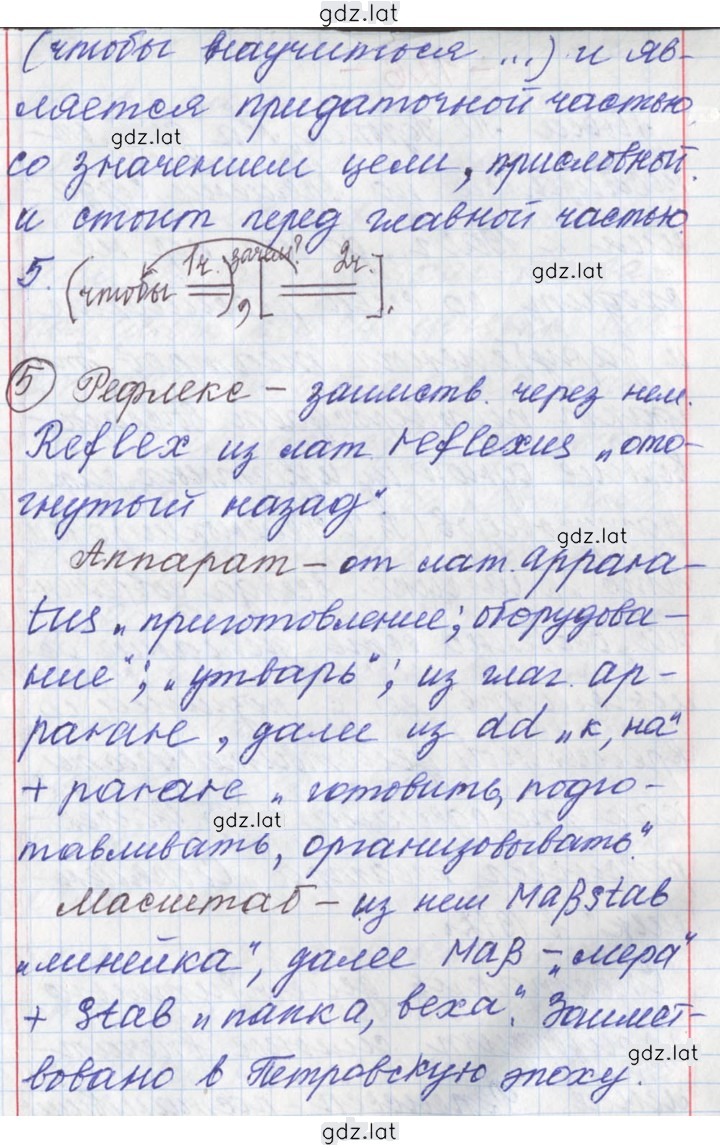 gdz.lat
(чтобы научиться ...) и яв-
ляется придаточной частью
gdz.lat
со значением цели, присловной.
и стоит перед главной частью.
1ч. зачем? 2ч.
5. (чтобы ==), [==].
gdz.lat
5 Рефлекс – заимств. через нем.
Reflex из лат. reflexus „ото-
гнутый назад“.
gdz.lat
Аппарат – от лат. appara-
tus „приготовление; оборудова-
ние“; „утварь“; из глаг. ap-
parare, далее из ad „к, на“
+ parare „готовить, подго-
gdz.lat
тавливать, организовывать“.
Масштаб – из нем Maβstab
„линейка“, далее Maβ – „мера“
+ Stab „папка, веха“. Заимст-
gdz.lat
вовано в Петровскую эпоху.
gdz.lat